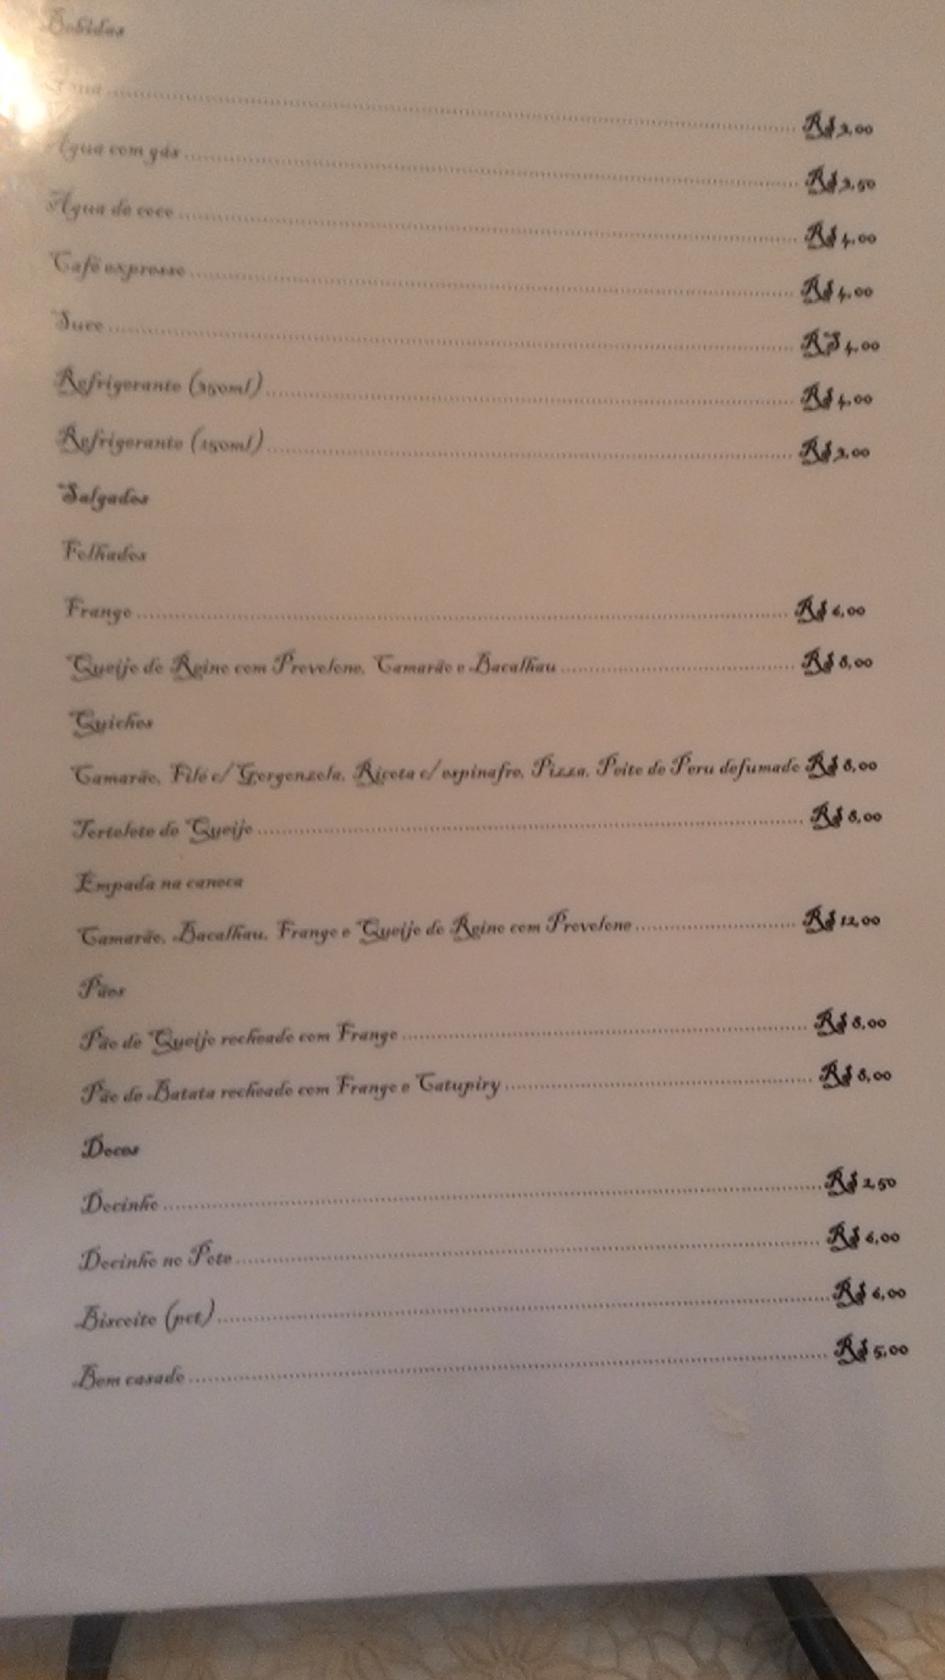 Bebidas
Água ........ R$ 3,00
Água com gás ........ R$ 3,50
Água de coco ........ R$ 4,00
Café expresso ........ R$ 4,00
Suco ........ R$ 4,00
Refrigerante (350ml) ........ R$ 4,00
Refrigerante (250ml) ........ R$ 3,00
Salgados
Folhados
Frango ........ R$ 6,00
Queijo do Reino com Provolone, Camarão e Bacalhau ........ R$ 8,00
Quiches
Camarão, Filé c/ Gorgonzola, Ricota c/ espinafre, Pizza, Peito de Peru defumado R$ 8,00
Tortelete de Queijo ........ R$ 8,00
Empada na caneca
Camarão, Bacalhau, Frango e Queijo do Reino com Provolone ........ R$ 12,00
Pães
Pão de Queijo recheado com Frango ........ R$ 8,00
Pão de Batata recheado com Frango e Catupiry ........ R$ 8,00
Doces
Docinho ........ R$ 2,50
Docinho no Pote ........ R$ 6,00
Biscoito (pct) ........ R$ 6,00
Bem casado ........ R$ 5,00